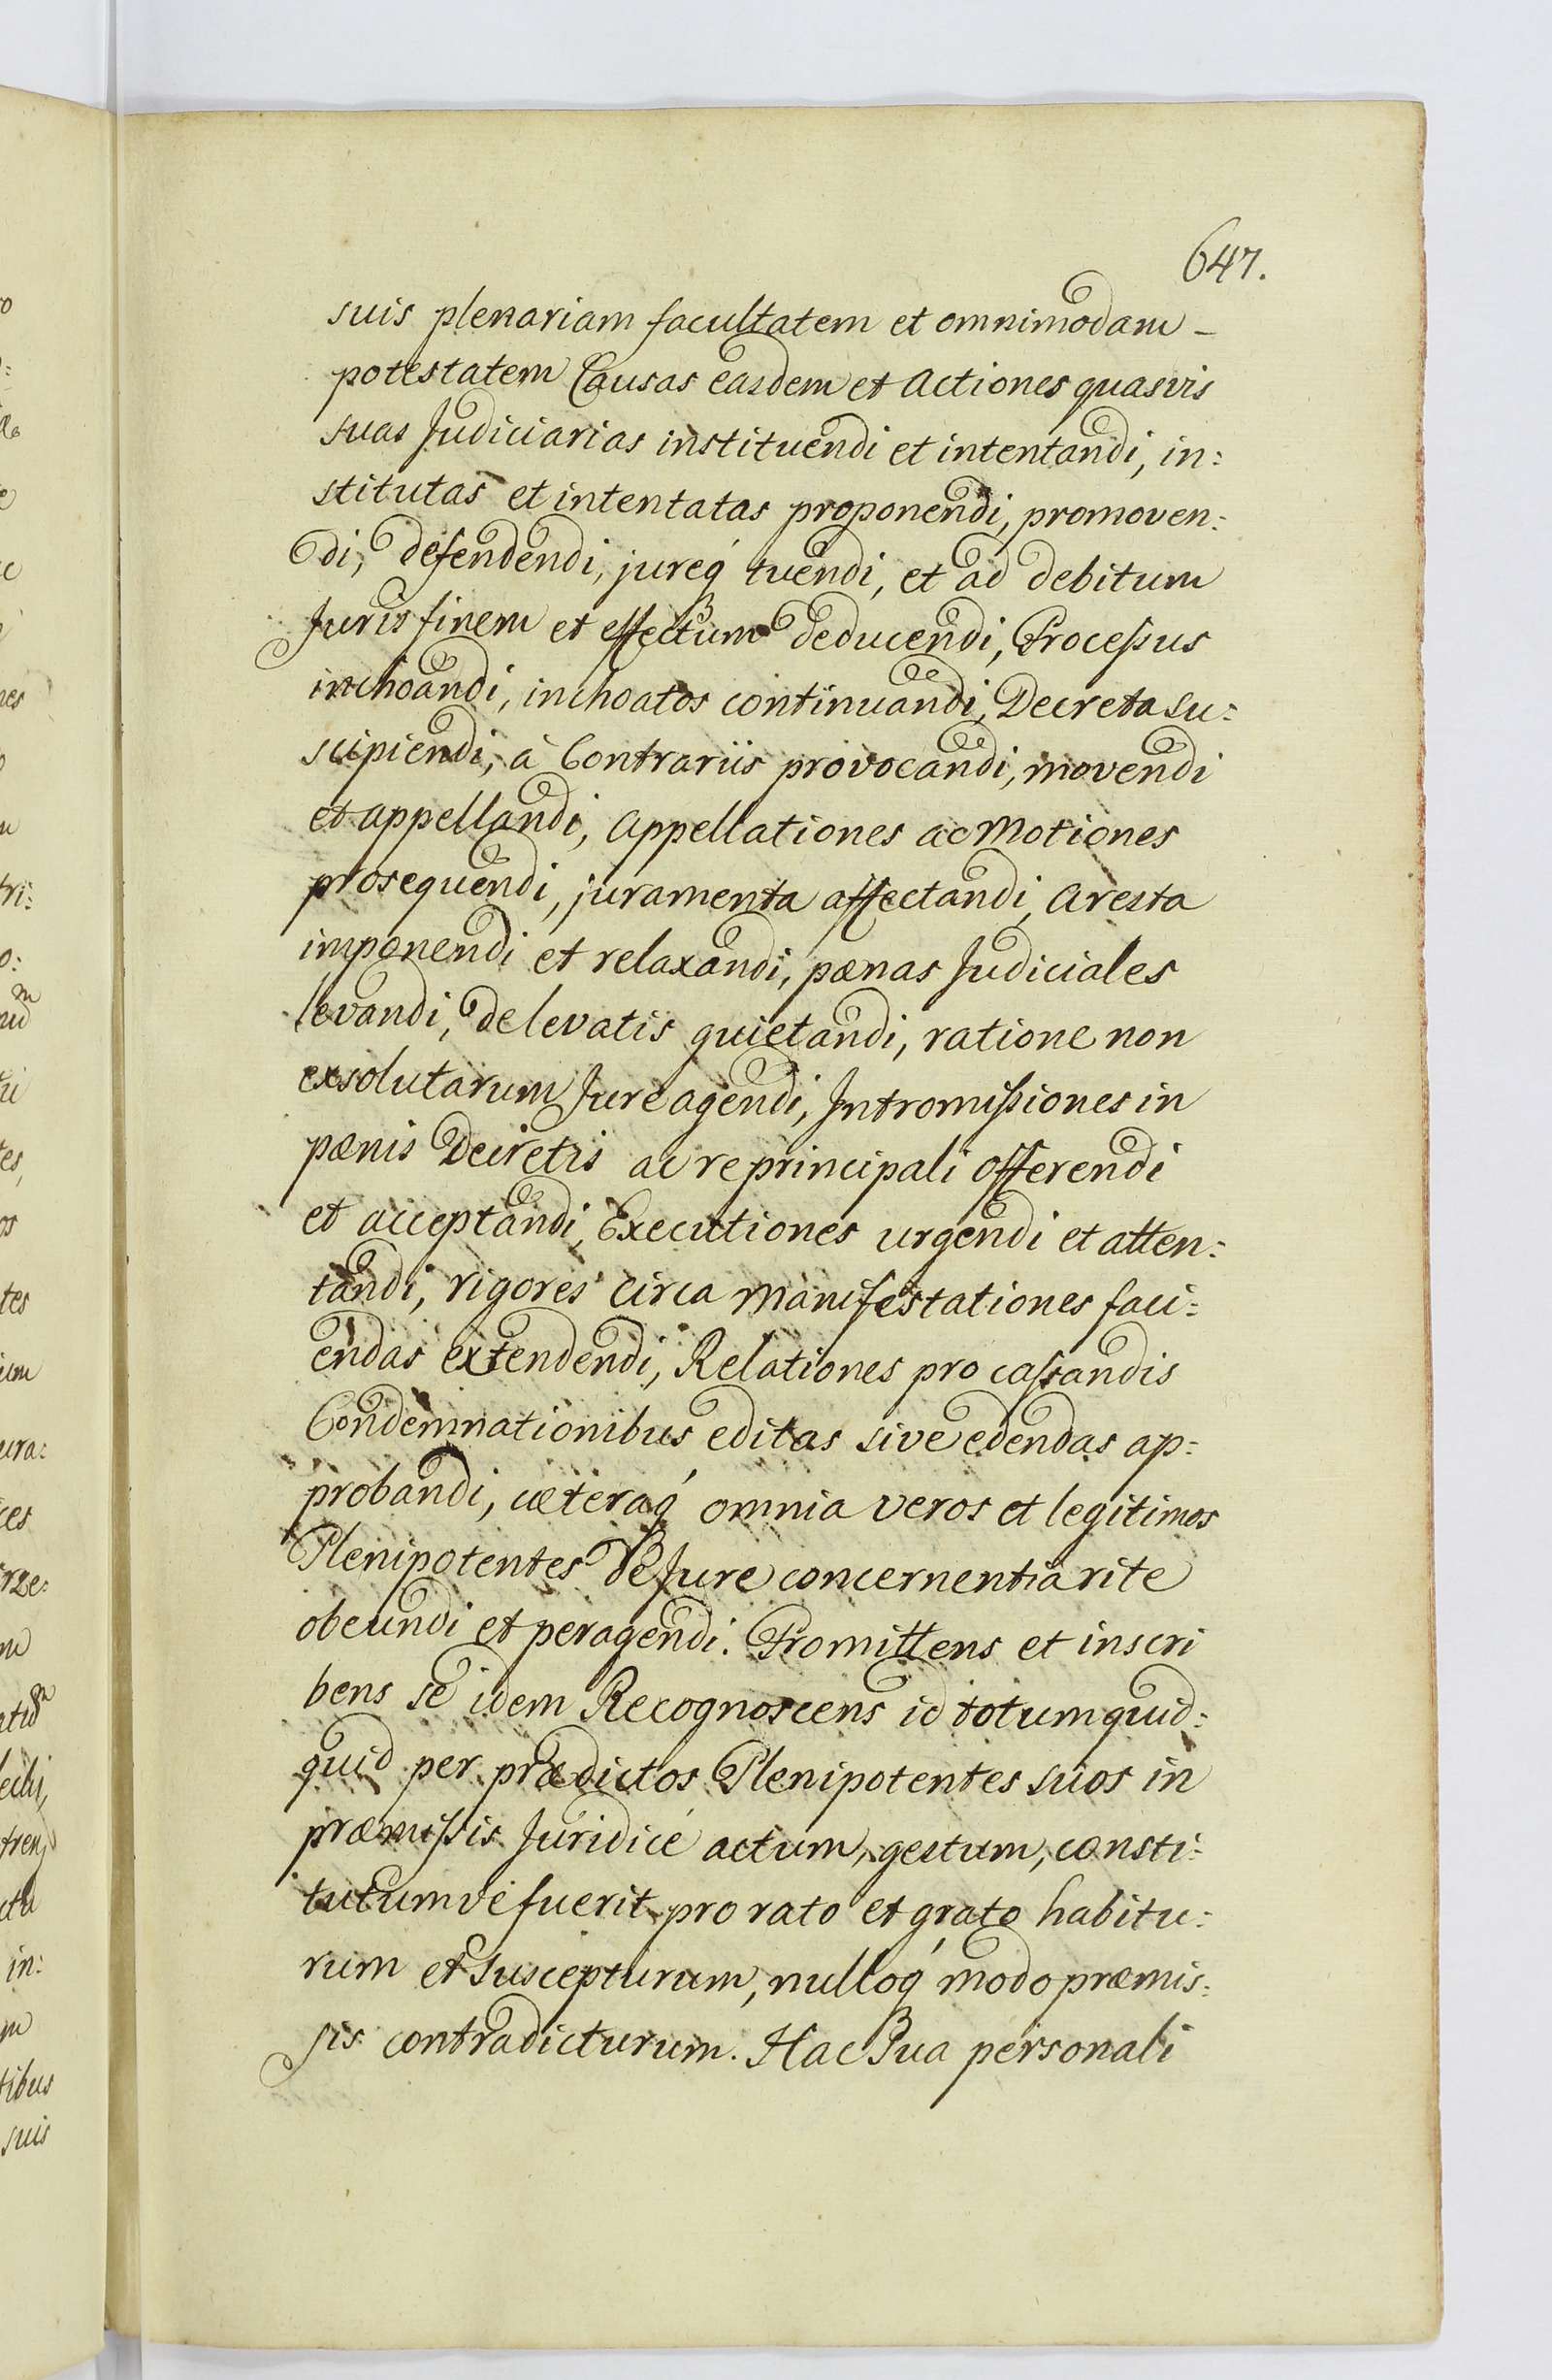 647.
suis plenariam facultatem et omnimodam –
potestatem Causas easdem et Actiones quasvis
suas Judiciarias instituendi et intentandi, in:
stitutas et intentatas proponendi, promoven:
di, defendendi, jureq́ tuendi, et ad debitum
Juris finem et effectum deducendi, Processus
inchoandi, inchoatos continuandi, Decreta su:
scipiendi, à Contrariis provocandi, movendi
et appellandi, Appellationes ac Motiones
prosequendi, juramenta affectandi, Aresta
imponendi et relaxandi, pænas Judiciales
levandi, de levatis quietandi, ratione non
exsolutarum Jure agendi, Intromissiones in
pænis Decretis ac re principali offerendi
et acceptandi, Executiones urgendi et atten:
tandi, rigores circa Manifestationes faci:
endas extendendi, Relationes pro cassandis
Condemnationibus editas sive edendas ap:
probandi, cæteraq́ omnia veros et legitimos
Plenipotentes de Jure concernentia rite
obeundi et peragendi. Promittens et inscri
bens se idem Recognoscens id totum quid:
quid per prædictos Plenipotentes suos in
præmissis Juridicé actum, gestum, consti:
tutumve fuerit pro rato et grato habitu:
rum et suscepturum, nulloq́ modo præmis:
sis contradicturum. Hac Sua personali